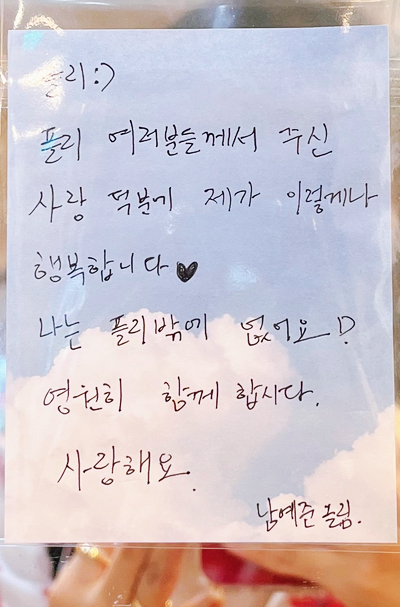 플리:)
플리 여러분들께서 주신
사랑 덕분에 제가 이렇게나
행복합니다♥
나는 플리밖에 없어요!?
영원히 함께 합시다.
사랑해요.
남예준 올림.